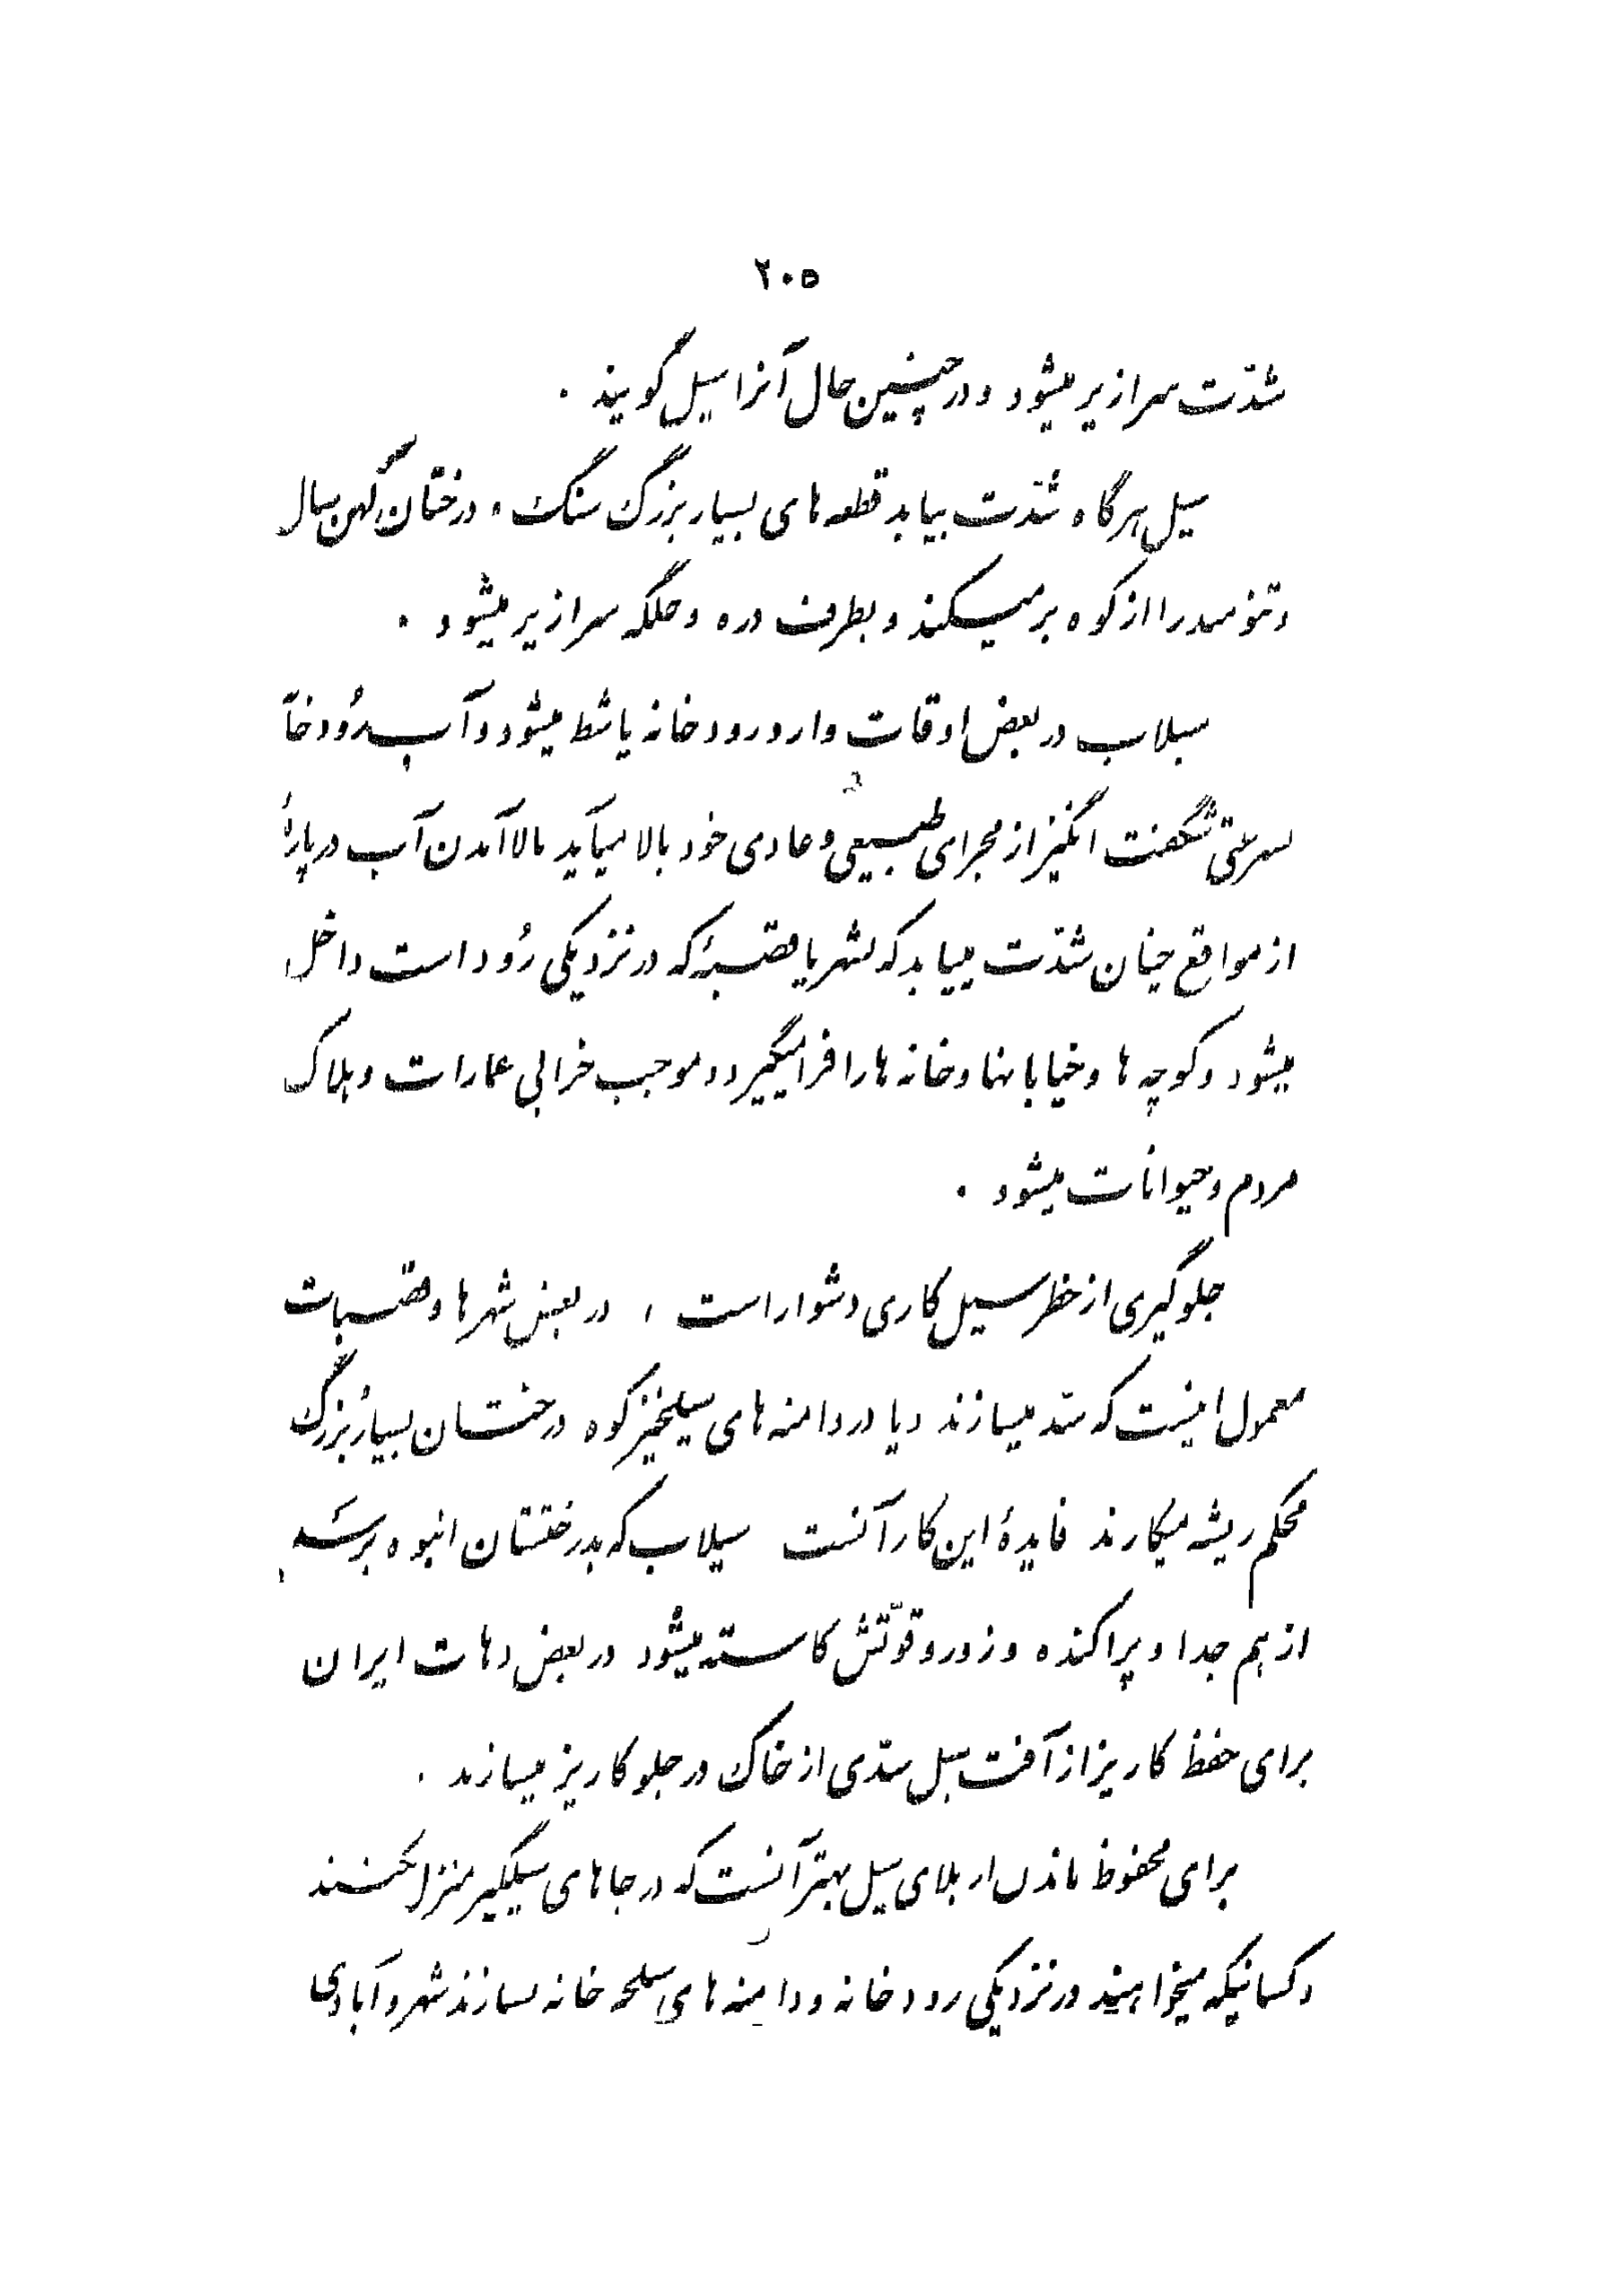 ۲۰۵
شدّت سرازیر میشود و در چنین حال آنرا سیل گویند .
سیل هرگاه شدّت بیابد قطعه های بسیار بزرگ سنگ و درختان کهن سال
و تنومند را از کوه بر میکند و بطرف دره و جلگه سرازیر میشود .
سیلاب در بعض اوقات وارد رودخانه یا شط میشود و آب رُودخانه
بسرعتی شگفت انگیز از مجرای طبیعی و عادی خود بالا میآید بالا آمدن آب در پارهٔ
از مواقع چنان شدّت مییابد که بشهر یا قصبهٔ که در نزدیکی رُود است داخل
میشود و کوچه ها و خیابانها و خانه ها را فرا میگیرد و موجب خرابی عمارات و هلاک
مردم و حیوانات میشود .
جلوگیری از خطر سیل کاری دشوار است ، در بعض شهرها و قصبات
معمول اینست که سدّ میسازند و یا در دامنه های سیلخیز کوه درختان بسیار بزرگ
محکم ریشه میکارند فایدهٔ این کار آنست سیلاب که بدرختستان انبوه برسَد
از هم جدا و پراکنده و زور و قوّتش کاسته میشود در بعض دهات ایران
برای حفظ کاریز از آفت سیل سدّی از خاک در جلو کاریز میسازند .
برای محفوظ ماندن از بلای سیل بهتر آنست که در جاهای سیلگیر منزل نکنند
و کسانیکه میخواهند در نزدیکی رودخانه و دامنه های خانه بسازند شهر و آبادی